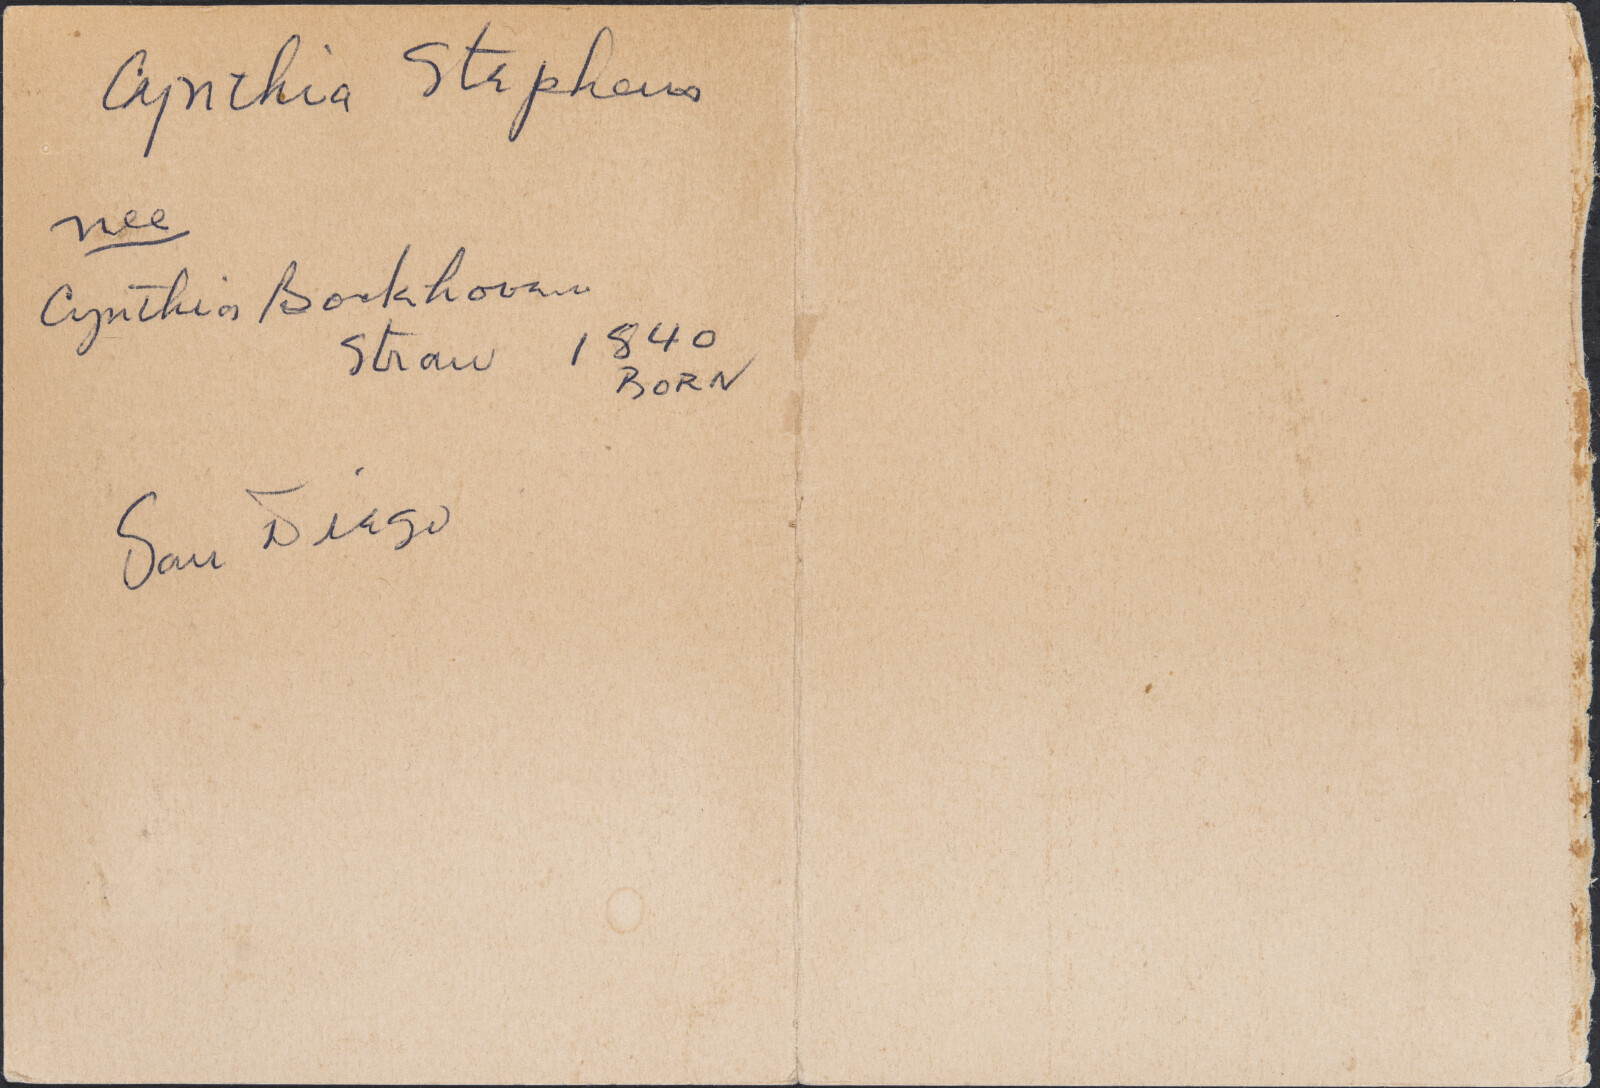 Cynthia Stephens
nee
Cynthia Bockhoven
Straw 1840
BORN
San Diego